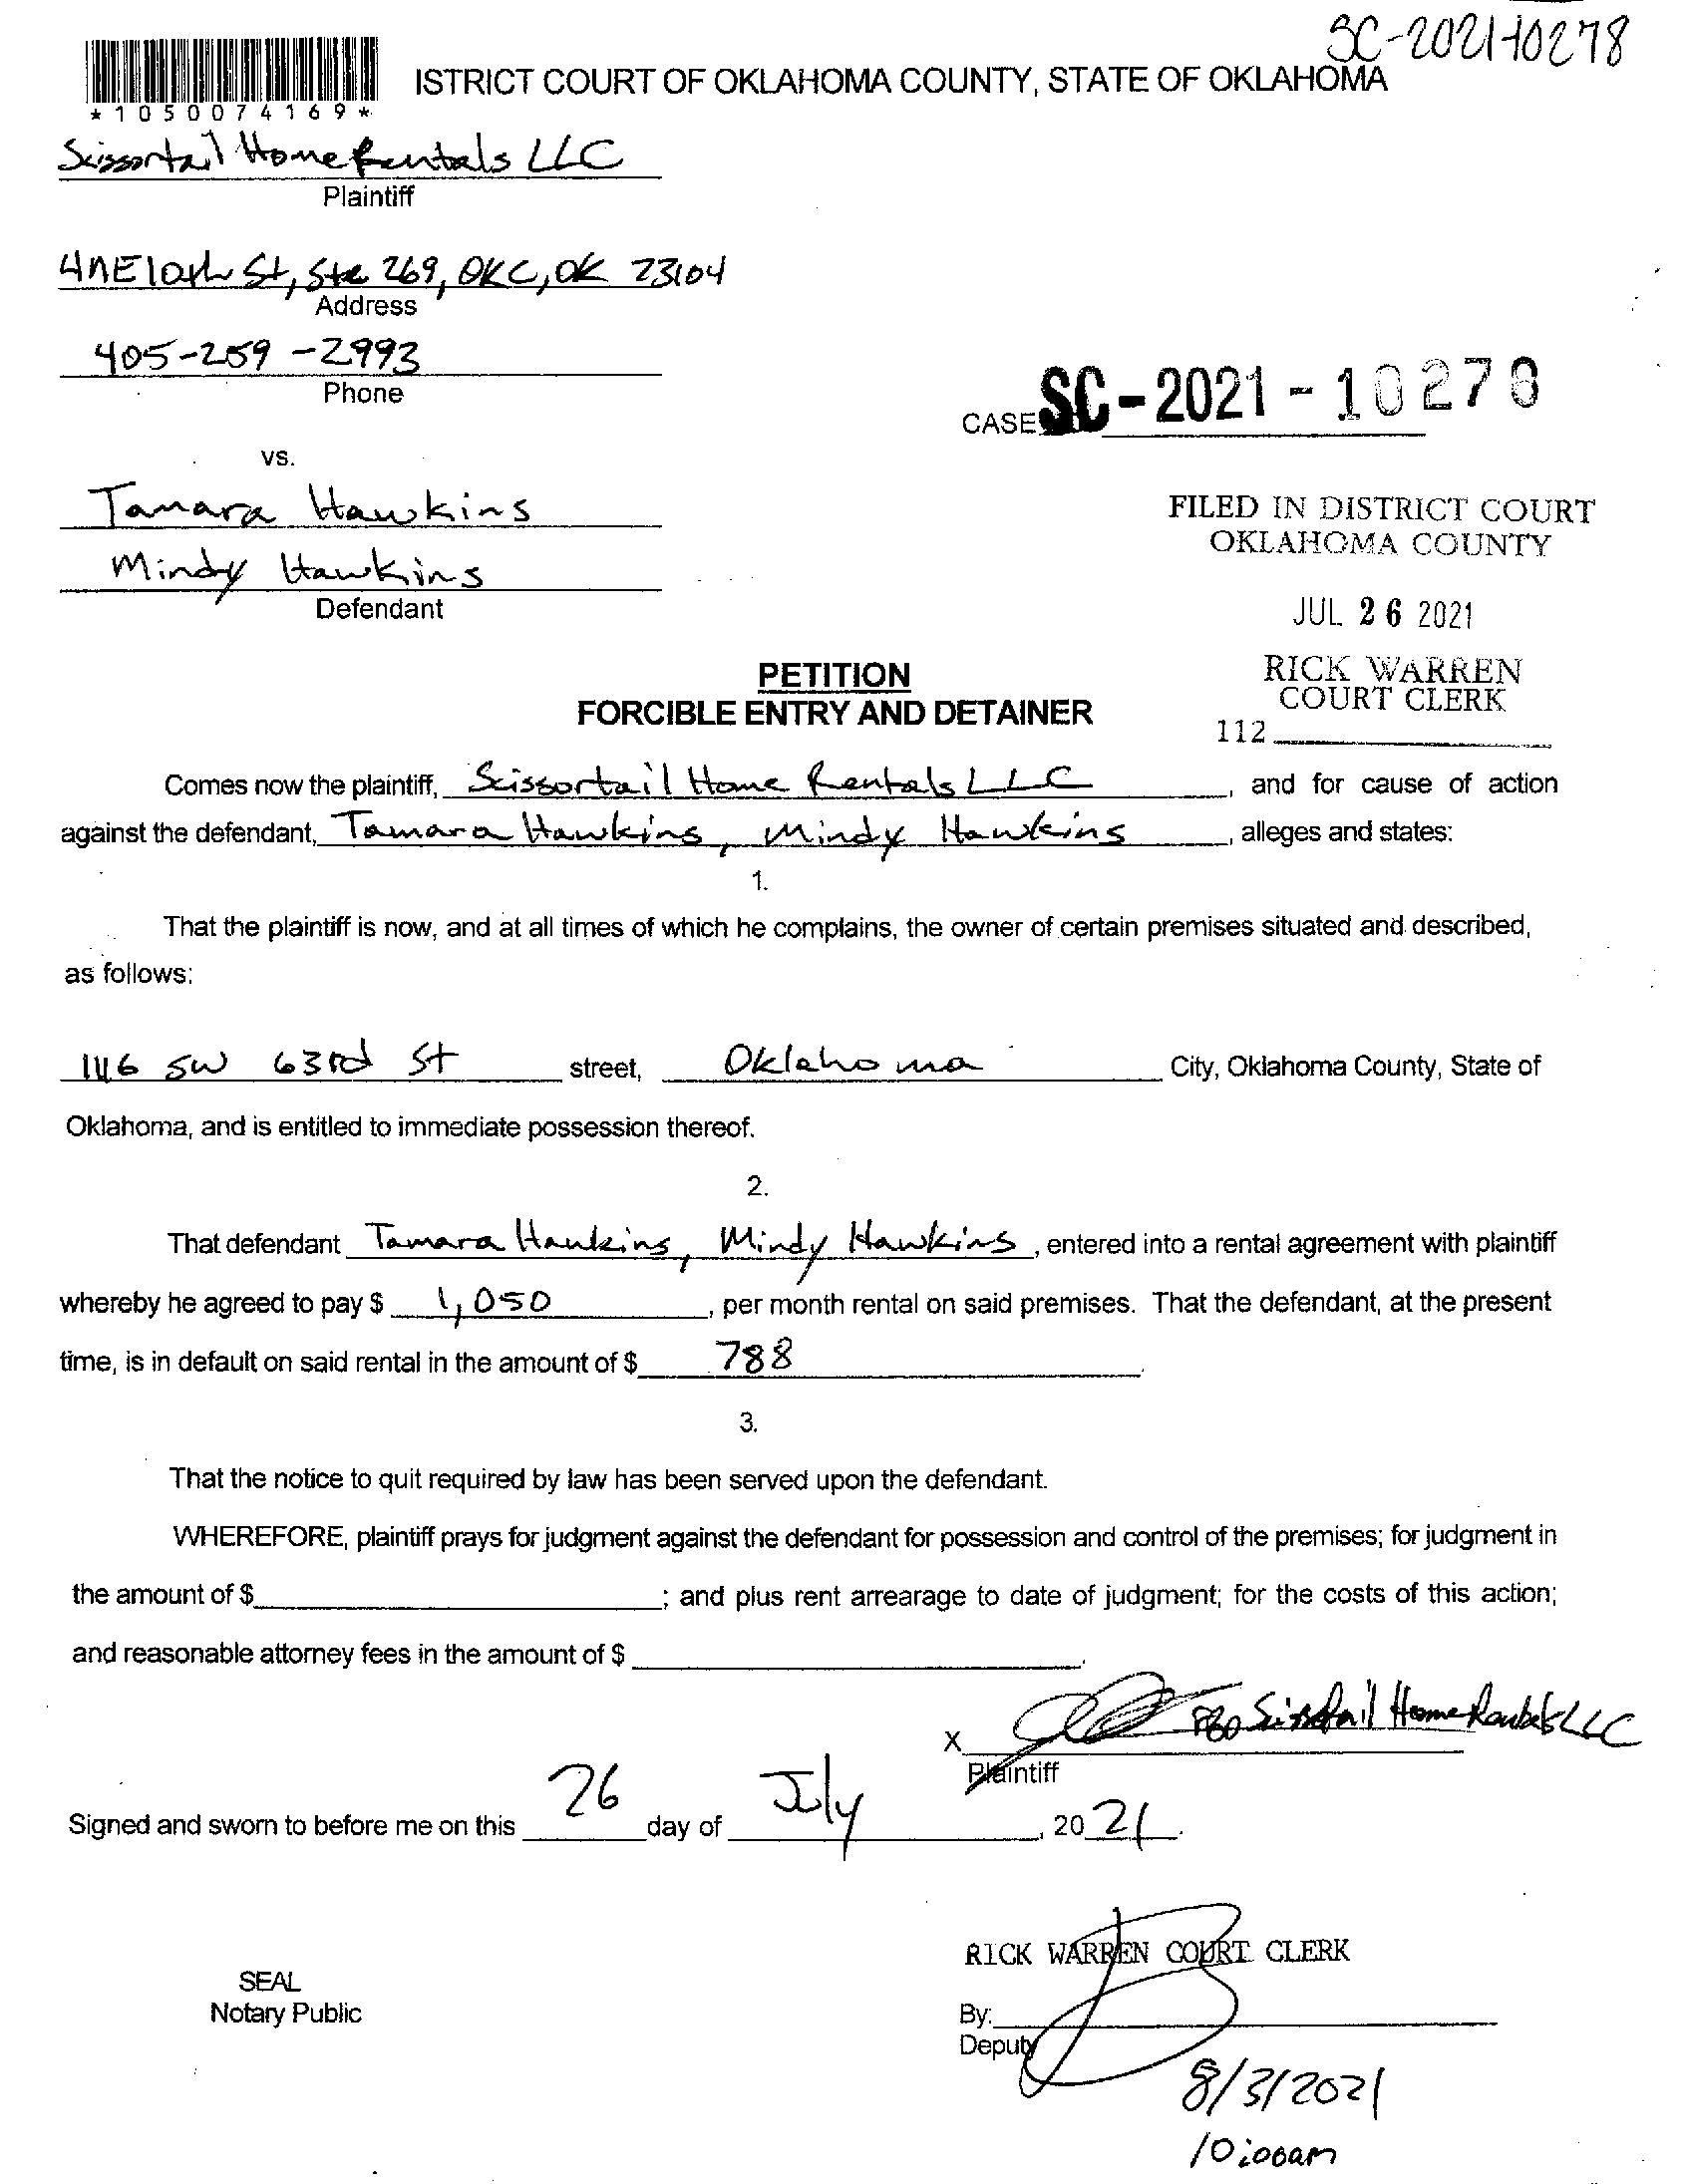 SC-2021-10278
ISTRICT COURT OF OKLAHOMA COUNTY, STATE OF OKLAHOMA
*1050074169*
Scissortail Home Rentals LLC
Plaintiff
4 NE 10th St, Ste 269, OKC, OK 73104
Address
405-259-2993
Phone
CASE SC-2021-10278
vs.
Tamara Hawkins
Mindy Hawkins
Defendant
FILED IN DISTRICT COURT
OKLAHOMA COUNTY
JUL 26 2021
RICK WARREN
COURT CLERK
112
PETITION
FORCIBLE ENTRY AND DETAINER
Comes now the plaintiff, Scissortail Home Rentals LLC, and for cause of action
against the defendant, Tamara Hawkins, Mindy Hawkins, alleges and states:
1.
That the plaintiff is now, and at all times of which he complains, the owner of certain premises situated and described,
as follows:
1116 SW 63rd St street, Oklahoma City, Oklahoma County, State of
Oklahoma, and is entitled to immediate possession thereof.
2.
That defendant Tamara Hawkins, Mindy Hawkins, entered into a rental agreement with plaintiff
whereby he agreed to pay $ 1,050, per month rental on said premises. That the defendant, at the present
time, is in default on said rental in the amount of $ 788.
3.
That the notice to quit required by law has been served upon the defendant.
WHEREFORE, plaintiff prays for judgment against the defendant for possession and control of the premises; for judgment in
the amount of $ ; and plus rent arrearage to date of judgment; for the costs of this action;
and reasonable attorney fees in the amount of $ .
X FBO Scissortail Home Rentals LLC
Plaintiff
Signed and sworn to before me on this 26 day of July, 2021.
RICK WARREN COURT CLERK
SEAL
Notary Public
By:
Deputy
8/3/2021
10:00am